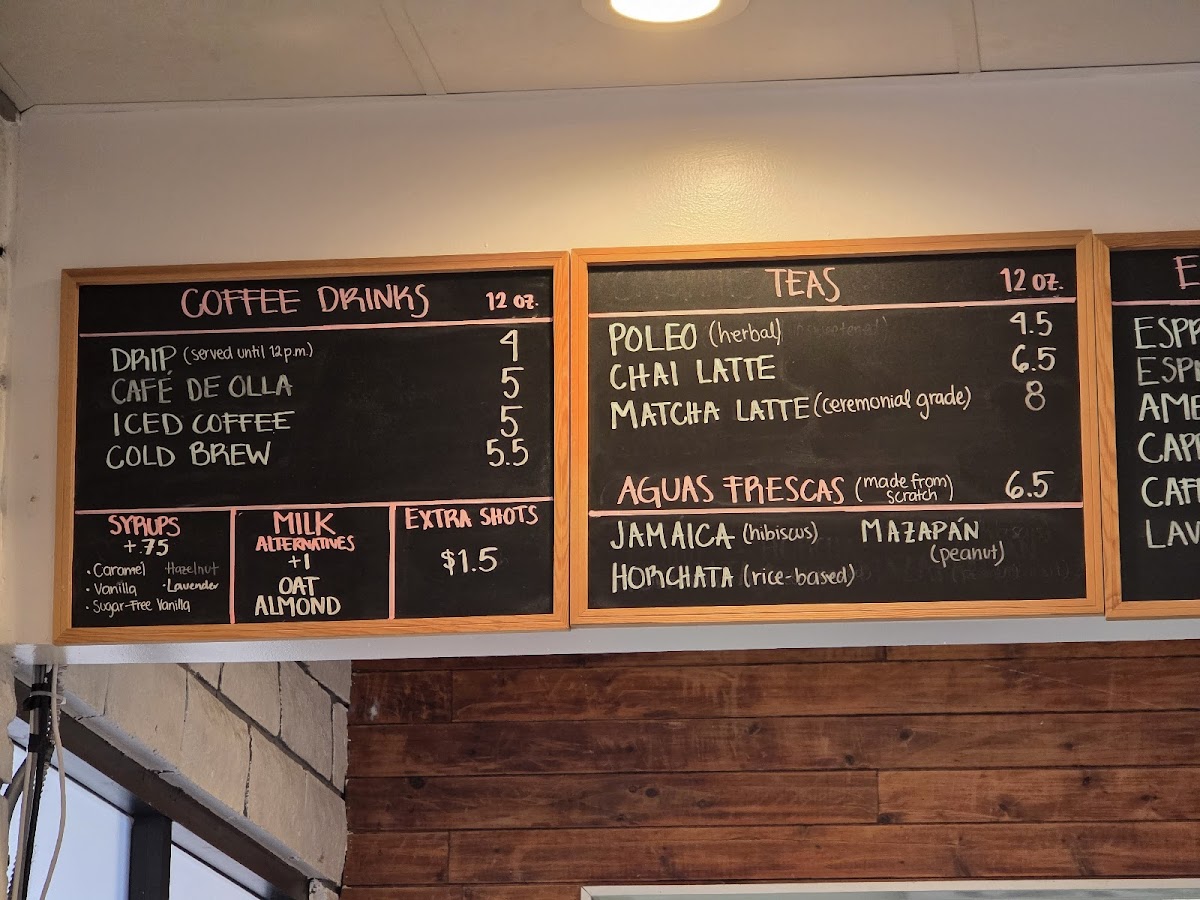 COFFEE DRINKS 12 oz.
DRIP (served until 12 p.m.) 4
CAFÉ DE OLLA 5
ICED COFFEE 5
COLD BREW 5.5
SYRUPS
+.75
• Caramel • Hazelnut
• Vanilla • Lavender
• Sugar-Free Vanilla
MILK
ALTERNATIVES
+1
OAT
ALMOND
EXTRA SHOTS
$1.5
TEAS 12 oz.
POLEO (herbal) 4.5
CHAI LATTE 6.5
MATCHA LATTE (ceremonial grade) 8
AGUAS FRESCAS (made from scratch) 6.5
JAMAICA (hibiscus) MAZAPÁN
(peanut)
HORCHATA (rice-based)
E
ESPR
ESPR
AME
CAPP
CAF
LAV